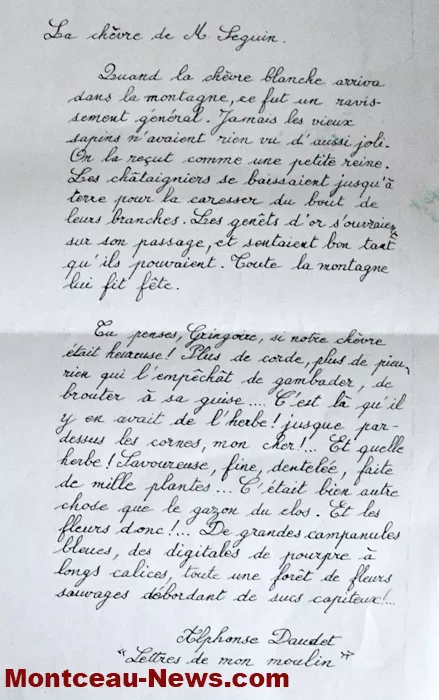 La chèvre de M Seguin.
Quand la chèvre blanche arriva
dans la montagne, ce fut un ravis-
sement général. Jamais les vieux
sapins n'avaient rien vu d'aussi joli.
On la reçut comme une petite reine.
Les châtaigniers se baissaient jusqu'à
terre pour la caresser du bout de
leurs branches. Les genêts d'or s'ouvraient
sur son passage, et sentaient bon tant
qu'ils pouvaient. Toute la montagne
lui fit fête.
Tu penses, Gringoire, si notre chèvre
était heureuse! Plus de corde, plus de pieu,
rien qui l'empêchât de gambader, de
brouter à sa guise.... C'est là qu'il
y en avait de l'herbe! jusque par-
dessus les cornes, mon cher!... Et quelle
herbe! Savoureuse, fine, dentelée, faite
de mille plantes... C'était bien autre
chose que le gazon du clos. Et les
fleurs donc!... De grandes campanules
bleues, des digitales de pourpre à
longs calices, toute une forêt de fleurs
sauvages débordant de sucs capiteux!...
Alphonse Daudet
"Lettres de mon moulin"
Montceau-News.com